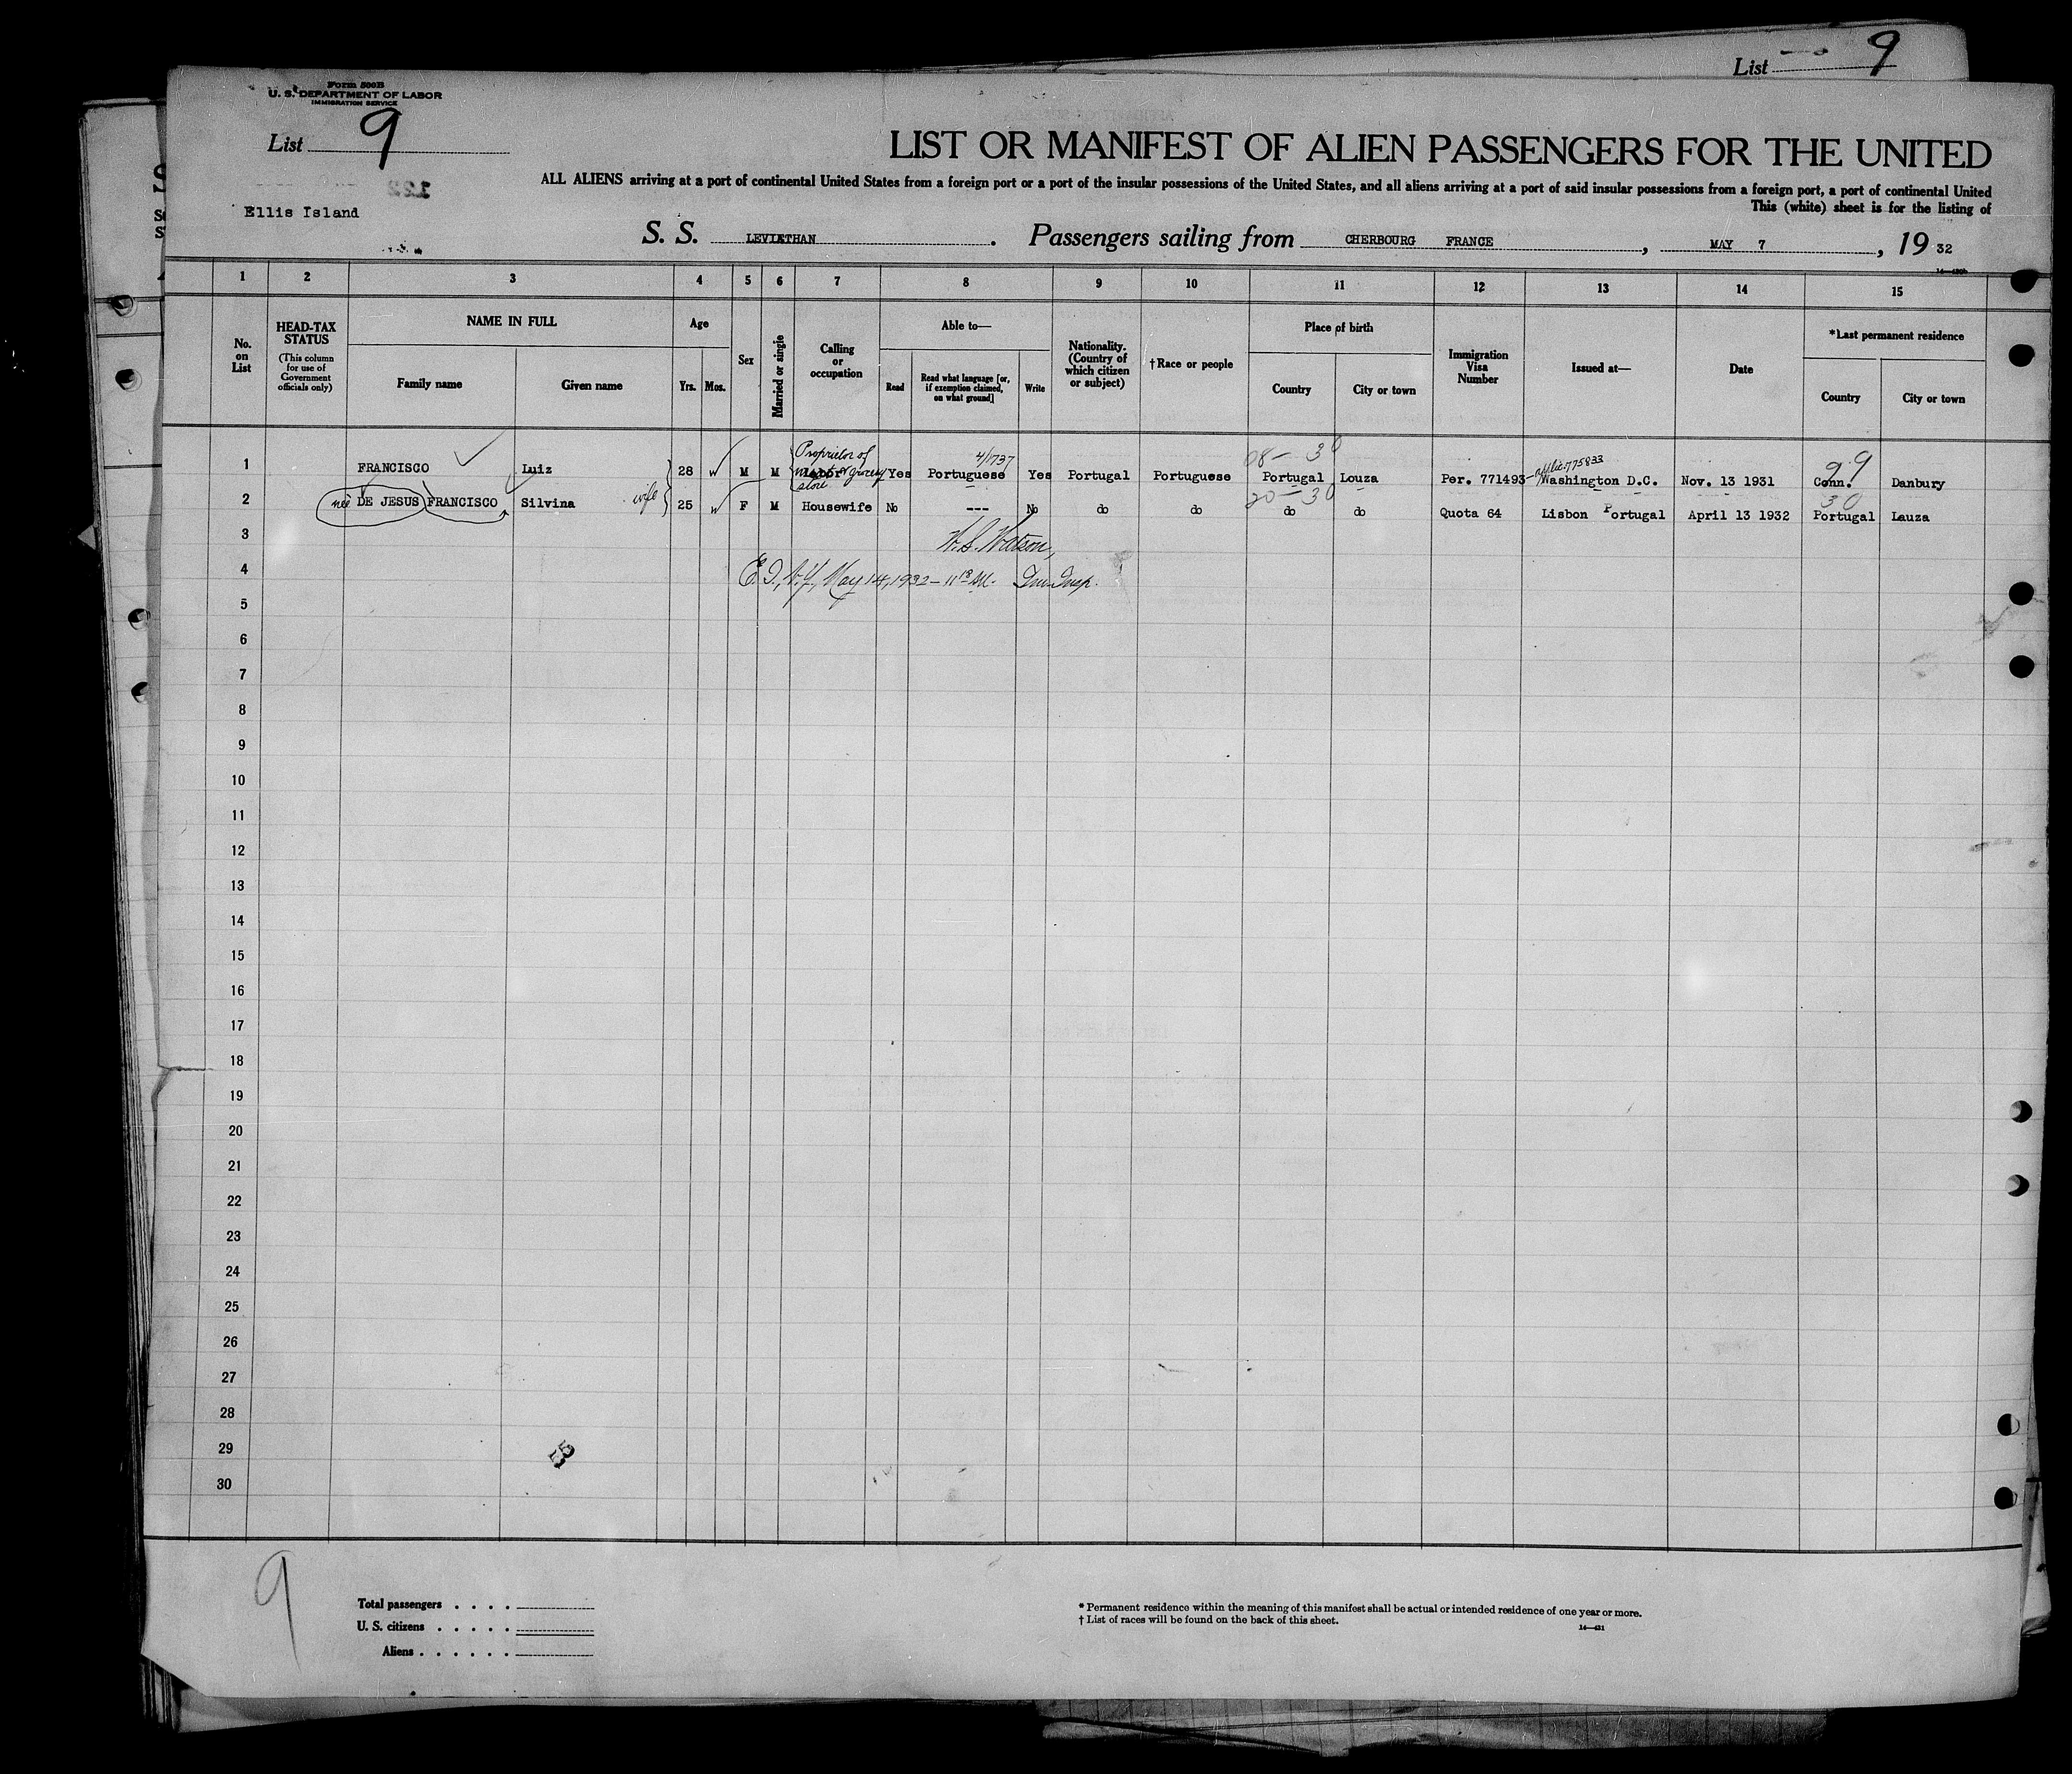 List 9
Form 500B
U. S. DEPARTMENT OF LABOR
IMMIGRATION SERVICE
List 9
LIST OR MANIFEST OF ALIEN PASSENGERS FOR THE UNITED
ALL ALIENS arriving at a port of continental United States from a foreign port or a port of the insular possessions of the United States, and all aliens arriving at a port of said insular possessions from a foreign port, a port of continental United
This (white) sheet is for the listing of
Ellis Island
S. S. LEVIETHAN . Passengers sailing from CHERBOURG FRANCE , MAY 7 , 19 32
1 2 3 4 5 6 7 8 9 10 11 12 13 14 15
No. on List
HEAD-TAX STATUS
(This column for use of Government officials only)
NAME IN FULL
Family name Given name
Age
Yrs. Mos.
Sex
Married or single
Calling or occupation
Able to—
Read
Read what language [or, if exemption claimed, on what ground]
Write
Nationality. (Country of which citizen or subject)
†Race or people
Place of birth
Country City or town
Immigration Visa Number
Issued at—
Date
*Last permanent residence
Country City or town
Proprietor of
4/1737
08— 30
applic. 775833
99
1 FRANCISCO Luiz 28 W M M Labor grocery Yes Portuguese Yes Portugal Portuguese Portugal Louza Per. 771493 Washington D.C. Nov. 13 1931 Conn. Danbury
store
20—30
30
2 neé DE JESUS FRANCISCO Silvina wife 25 W F M Housewife No --- No do do do do Quota 64 Lisbon Portugal April 13 1932 Portugal Lauza
3 W. S. Watson,
4 E. I., N. Y., May 14, 1932 — 11 18 AM. Im. Insp.
5
6
7
8
9
10
11
12
13
14
15
16
17
18
19
20
21
22
23
24
25
26
27
28
29
30
9
Total passengers . . . .
U. S. citizens . . . . .
Aliens . . . . . .
* Permanent residence within the meaning of this manifest shall be actual or intended residence of one year or more.
† List of races will be found on the back of this sheet.
14—431